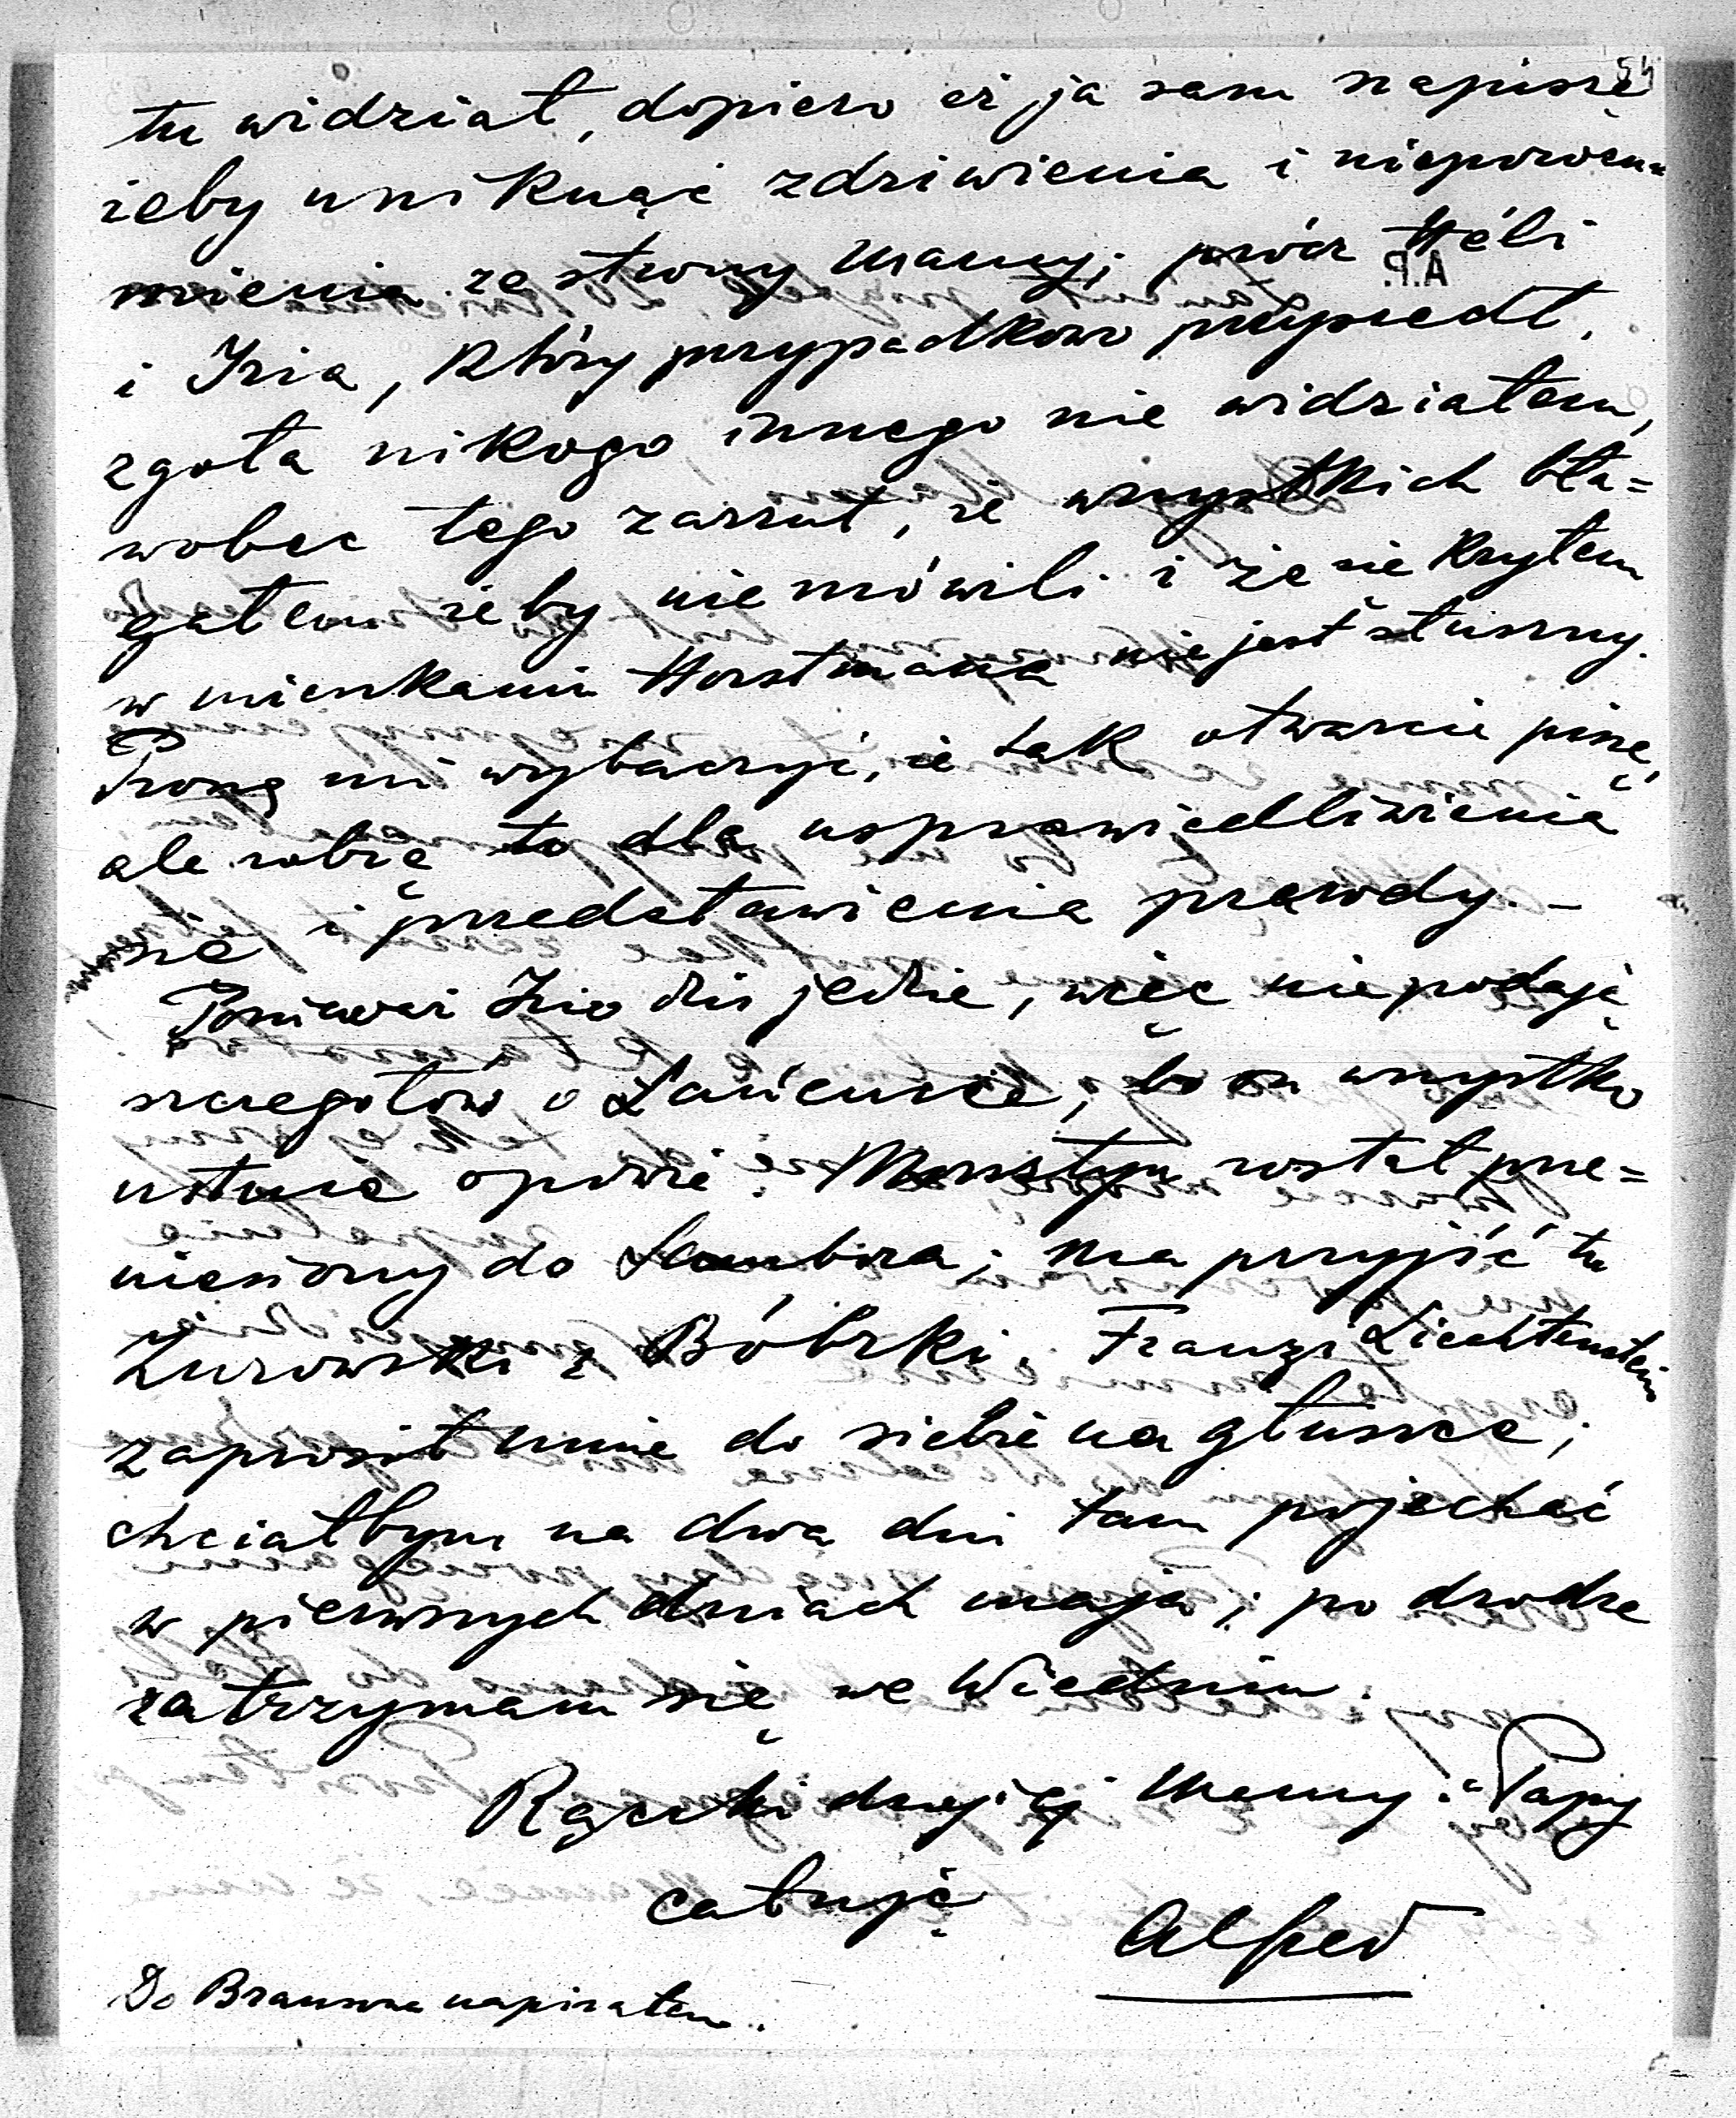 54
tu widział, dopiero aż ja sam napiszę
żeby uniknąć zdziwienia i nieporozu=
mienia ze strony Mamy; prócz Héli
A.P.
i Izia, który przypadkowo przyszedł,
zgoła nikogo innego nie widziałem,
wobec tego zarzut, że wszystkich bła=
gałem żeby nie mówili i że się kryłem
w mieszkaniu Horstmana nie jest słuszny.
Proszę mi wybaczyć, że tak otwarcie piszę,
ale robię to dla usprawiedliwienia
się i przedstawienia prawdy. –
Ponieważ Izio dziś jedzie, więc nie podaję
szczegółów o Łańcucie, bo on wszystko
ustnie opowie. Morsztyn został prze=
niesiony do Sambora; ma przyjść tu
Żurowski z Bóbrki. Franzi Liechtenstein
zaprosił mnie do siebie na głuszce;
chciałbym na dwa dni tam pojechać
w pierwszych dniach maja; po drodze
zatrzymam się we Wiedniu.
Rączki drogiej Mamy i Papy
całuję
Alfred
Do Braunsa napisałem.